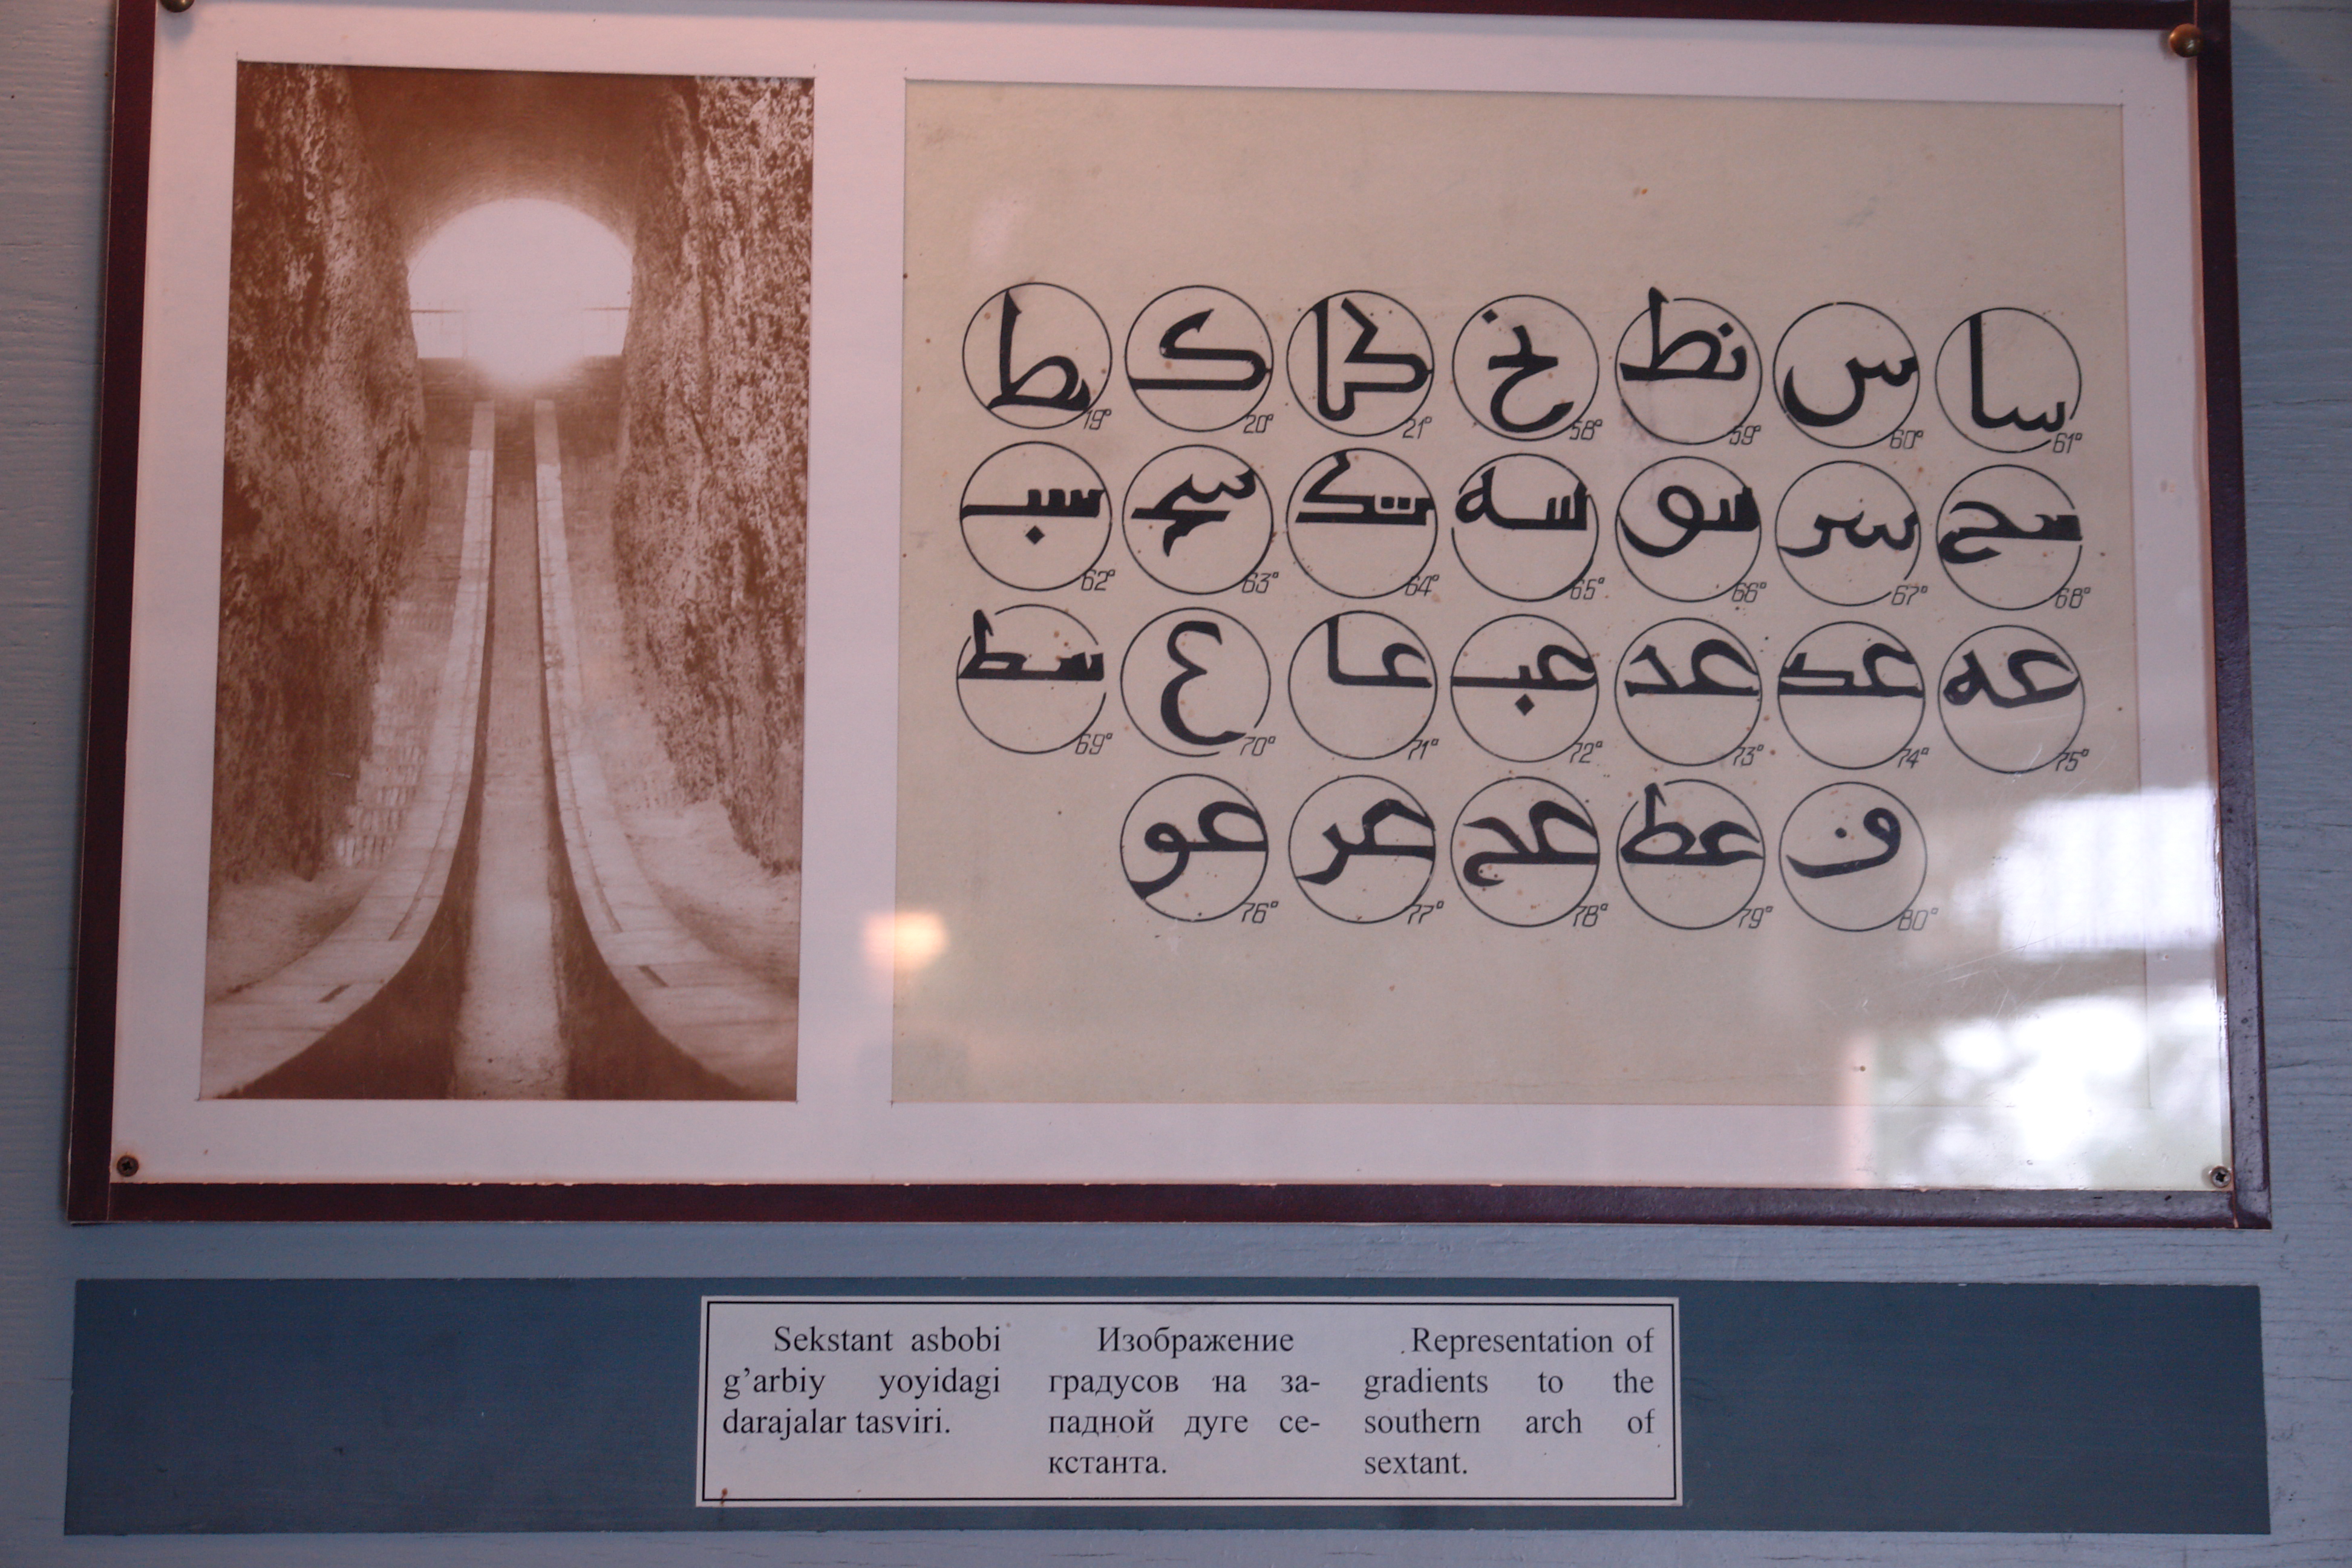 ك كا نح نط س سا
19° 20° 21° 58° 59° 60° 61°
سب سه سو سر سح
62° 63° 64° 65° 66° 67° 68°
سط ع عا عب عد عه
69° 70° 71° 72° 73° 74° 75°
عو عر عح عط ف
76° 77° 78° 79° 80°
Sekstant asbobi
g’arbiy yoyidagi
darajalar tasviri.
Изображение
градусов на за-
падной дуге се-
кстанта.
Representation of
gradients to the
southern arch of
sextant.